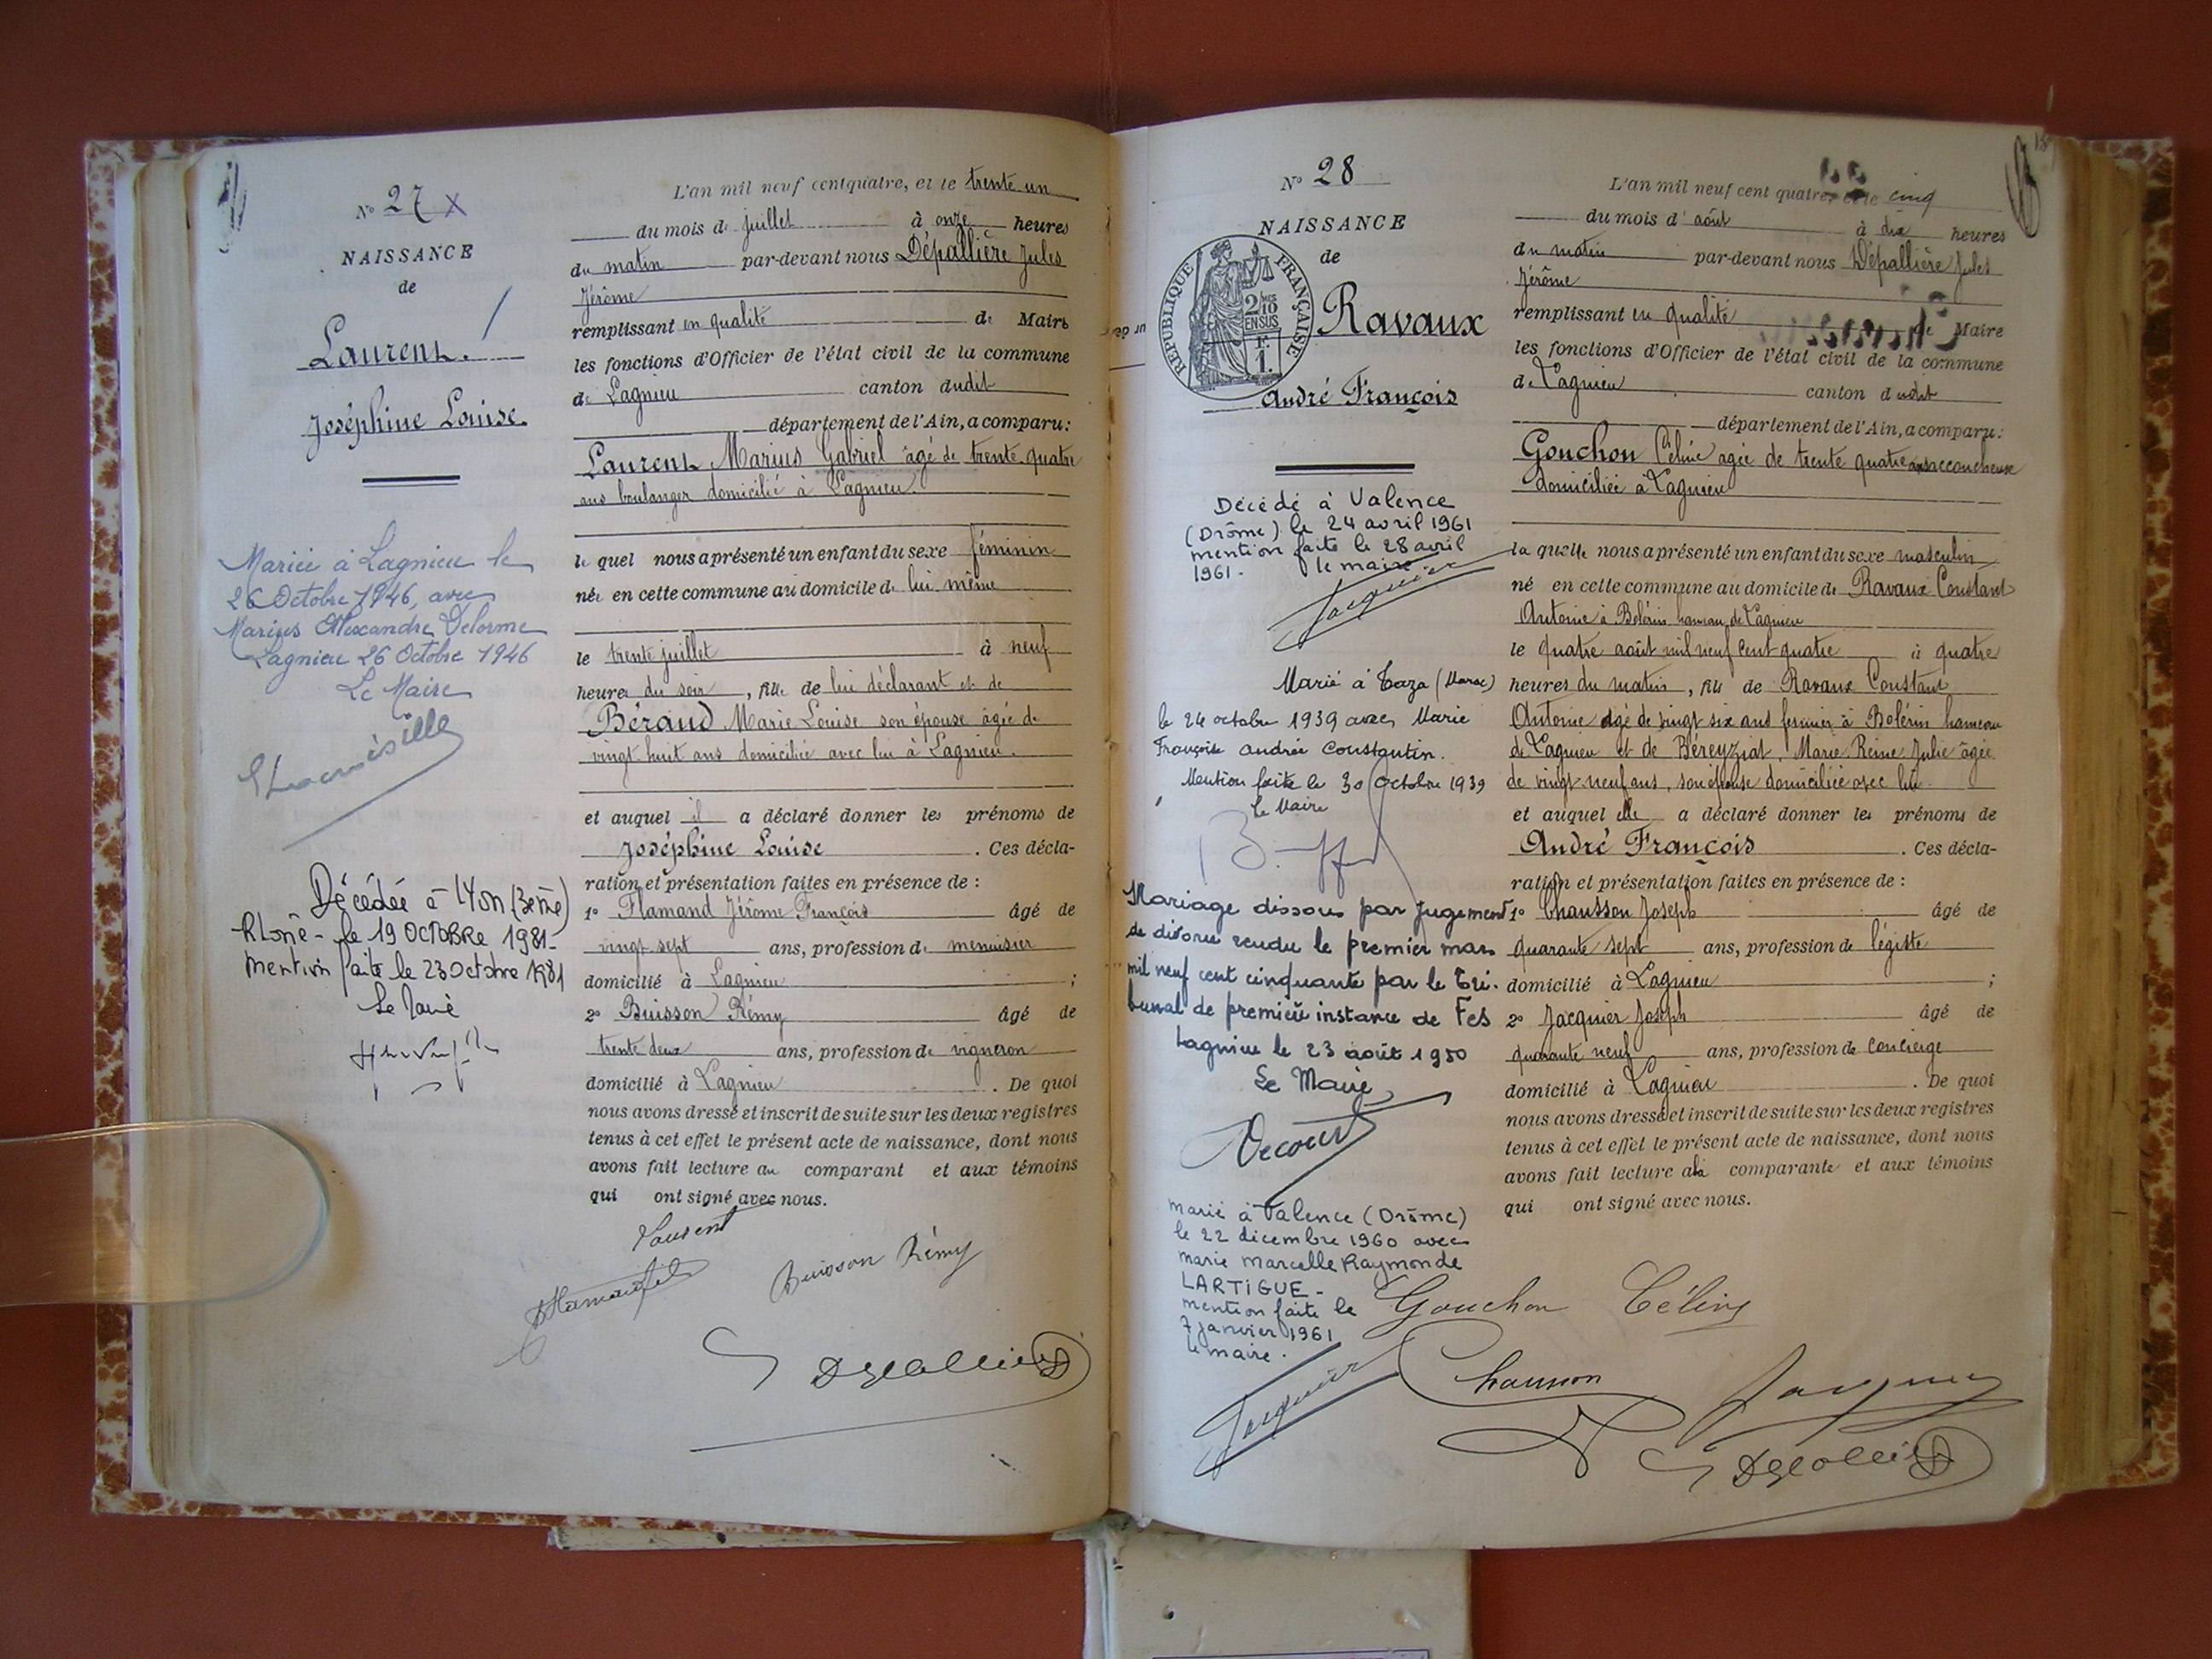 N° 27 X
NAISSANCE
de
Laurent.
Joséphine Louise.
Mariée à Lagnieu le
26 Octobre 1946, avec
Marius Alexandre Delorme
Lagnieu 26 Octobre 1946
Le Maire
Décédée à Lyon (3ème)
Rhône - le 19 OCTOBRE 1981-
Mention faite le 23 Octobre 1981
Le Maire
L'an mil neuf cent quatre, et le trente un
du mois de juillet à onze heures
du matin par-devant nous Dépallière Jules
Jérôme
remplissant en qualité de Maire
les fonctions d'Officier de l'état civil de la commune
de Lagnieu canton dudit
département de l'Ain, a comparu:
Laurent Marius Gabriel âgé de trente-quatre
ans boulanger domicilié à Lagnieu.
le quel nous a présenté un enfant du sexe féminin
née en cette commune au domicile de lui même
le trente juillet à neuf
heures du soir, fille de lui déclarant et de
Béraud Marie Louise son épouse âgée de
vingt huit ans domiciliée avec lui à Lagnieu.
et auquel il a déclaré donner les prénoms de
Joséphine Louise. Ces décla-
ration et présentation faites en présence de :
1° Flamand Jérôme François âgé de
vingt sept ans, profession de menuisier
domicilié à Lagnieu ;
2° Buisson Rémy âgé de
trente deux ans, profession de vigneron
domicilié à Lagnieu. De quoi
nous avons dressé et inscrit de suite sur les deux registres
tenus à cet effet le présent acte de naissance, dont nous
avons fait lecture au comparant et aux témoins
qui ont signé avec nous.
Laurent
Buisson Rémy
N° 28
NAISSANCE
de
REPUBLIQUE FRANÇAISE
2/10 EN SUS
F. 1.
Ravaux
André François
Décédé à Valence
(Drôme) le 24 avril 1961
mention faite le 28 avril
1961. le maire
Jacquier
Marié à Taza (Maroc)
le 24 octobre 1939 avec Marie
Françoise andrée Constantin.
Mention faite le 30 Octobre 1939
Le Maire
Mariage dissous par jugement
de divorce rendu le premier mars
mil neuf cent cinquante par le Tri-
bunal de première instance de Fes
Lagnieu le 23 août 1950
Le Maire
marié à Valence (Drôme)
le 22 décembre 1960 avec
marie marcelle Raymonde
LARTIGUE -
mention faite le
7 janvier 1961
le maire.
Jacquier
L'an mil neuf cent quatre, et le cinq
du mois d'août à dix heures
du matin par-devant nous Dépallière Jules
Jérôme
remplissant en qualité de Maire
les fonctions d'Officier de l'état civil de la commune
de Lagnieu canton dudit
département de l'Ain, a comparu:
Gouchon Céline agée de trente quatre ans accoucheuse
domiciliée à Lagnieu
la quelle nous a présenté un enfant du sexe masculin
né en cette commune au domicile de Ravaux Constant
Antoine à Bolérin hameau de Lagnieu
le quatre août mil neuf cent quatre à quatre
heures du matin, fils de Ravaux Constant
Antoine âgé de vingt six ans fermier à Bolérin hameau
de Lagnieu et de Béreyziat Marie Reine Julie âgée
de vingt-neuf ans, son épouse domiciliée avec lui
et auquel elle a déclaré donner les prénoms de
André François. Ces décla-
ration et présentation faites en présence de :
1° Chausson Joseph âgé de
quarante sept ans, profession de légiste
domicilié à Lagnieu ;
2° Jacquier Joseph âgé de
quarante neuf ans, profession de concierge
domicilié à Lagnieu. De quoi
nous avons dressé et inscrit de suite sur les deux registres
tenus à cet effet le présent acte de naissance, dont nous
avons fait lecture à la comparante et aux témoins
qui ont signé avec nous.
Gouchon Céline
Chausson